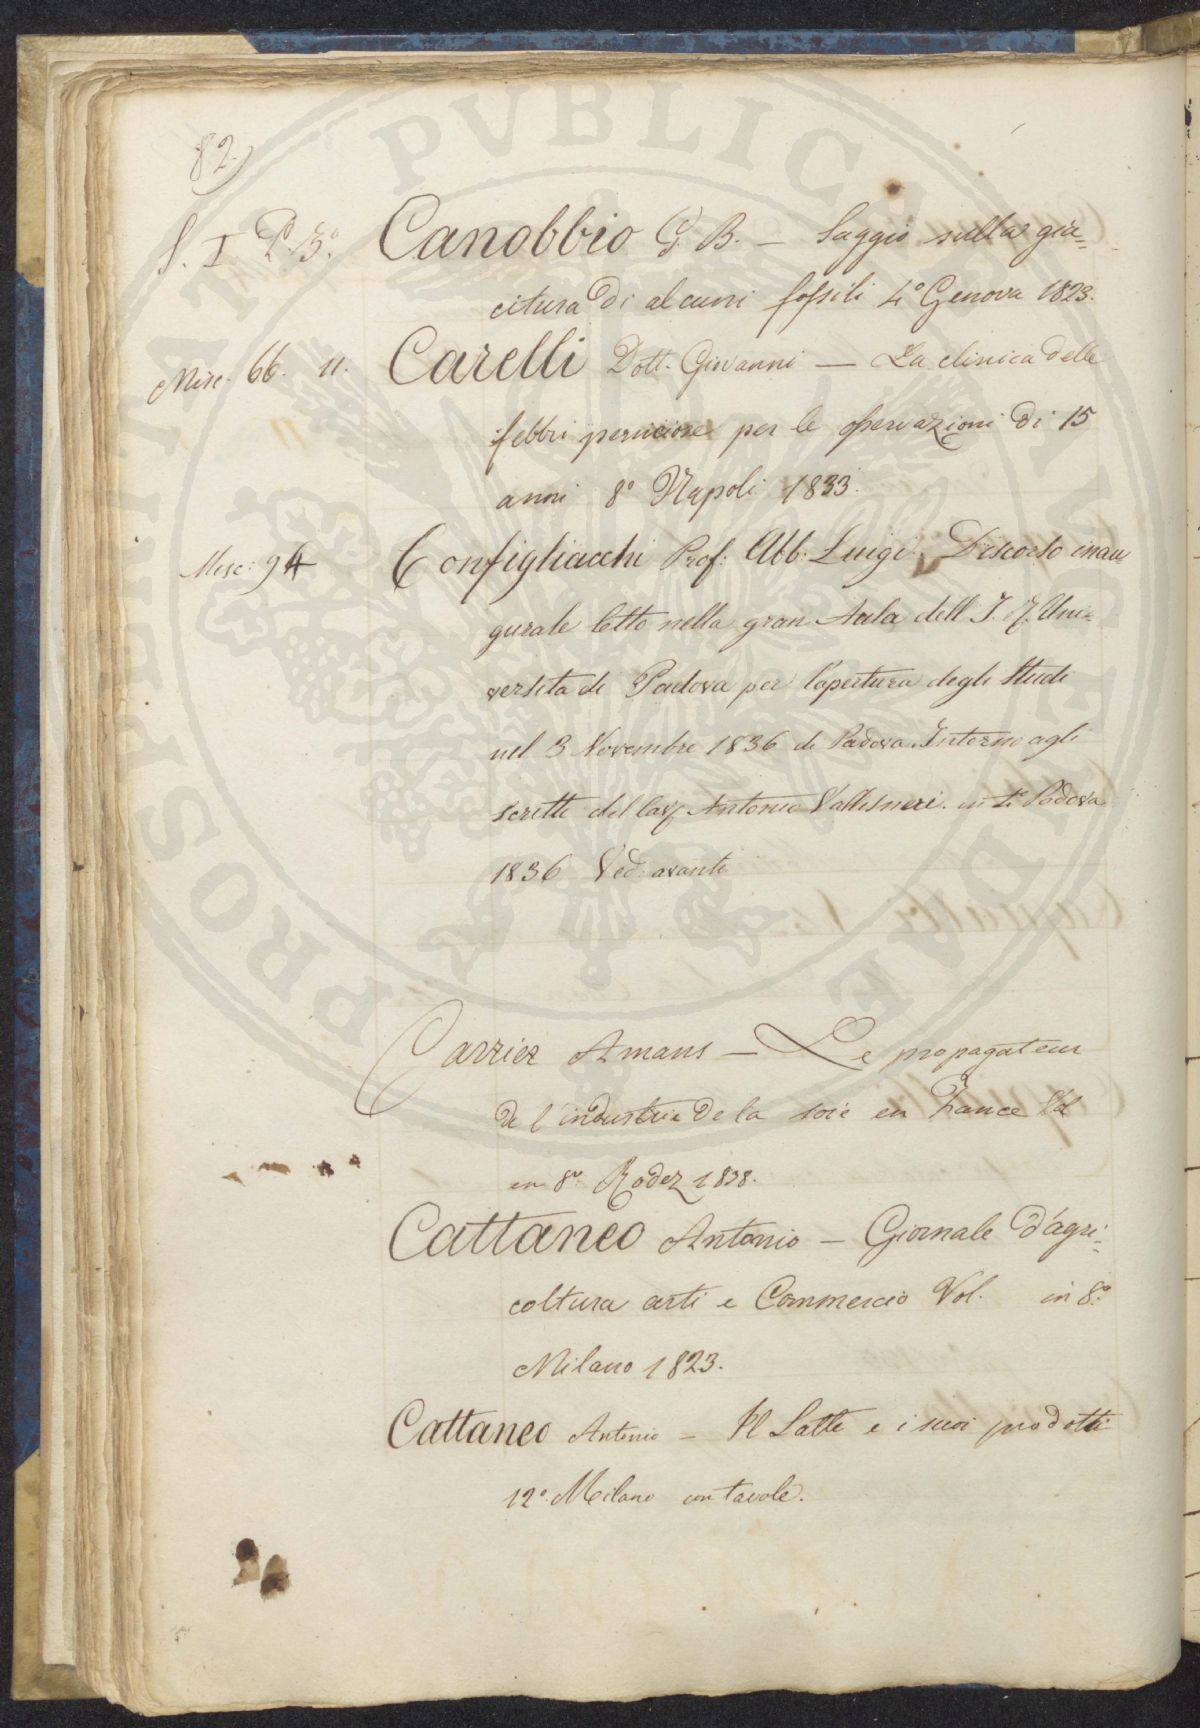 82.
S. I P. 3.° Canobbio G. B. — Saggio sulla gia-
citura di alcuni fossili 4° Genova 1823.
Misc. 66. 11. Carelli Dott. Giovanni — La clinica delle
febbri perniciose per le osservazioni di 15
anni 8° Napoli 1833.
Misc: 94 Configliacchi Prof: Abb: Luigi: Discorso inau
gurale letto nella gran Aula dell I. R. Uni-
versità di Padova per l'apertura degli Studi
nel 3 Novembre 1836 di Padova. Intorno agli
scritti del Cav Antonio Vallisneri. in 4° Padova
1836 Ved: avanti
Carrier Amans — Le propagateur
de l industrie de la soie en France Vol
en 8° Rodez 1838.
Cattaneo Antonio — Giornale d'agri-
coltura arti e Commercio Vol. in 8.°
Milano 1823.
Cattaneo Antonio — Il Latte e i suoi prodotti
12° Milano con tavole.
PROSPERITATI PUBLICAE